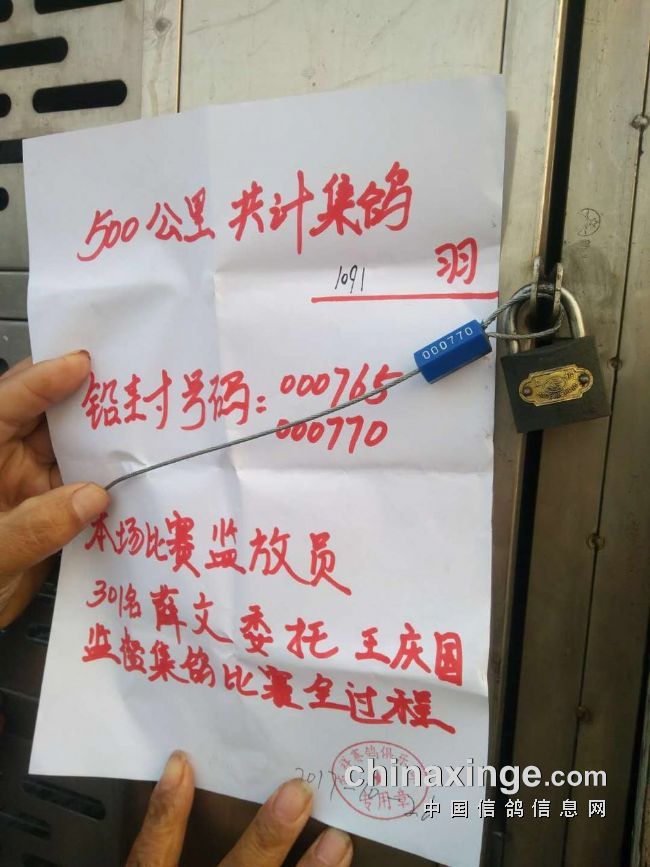 500公里 共计集鸽
1091 羽
铅封号码：000765
000770
000770
本场比赛监放员
301名 薛文 委托 王庆国
监督集鸽比赛全过程
赛鸽俱乐
专用章
2017
chinaxinge.com
中国信鸽信息网